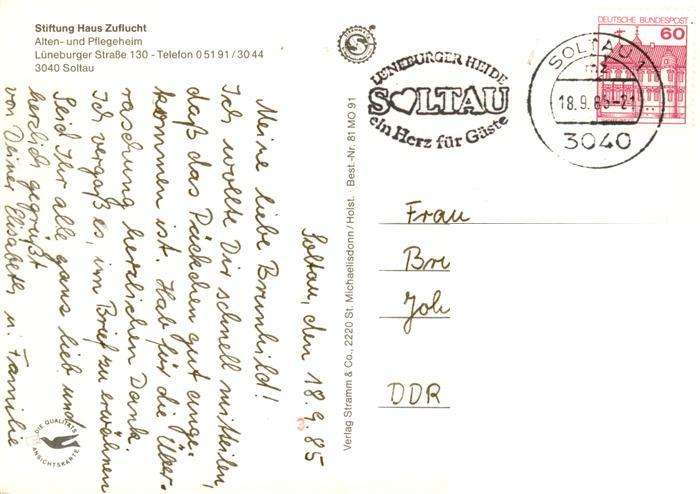 Stiftung Haus Zuflucht
Alten- und Pflegeheim
Lüneburger Straße 130 - Telefon 05191/3044
3040 Soltau
Soltau, den 18.9.85
Meine liebe Brunhild!
Ich wollte Dir schnell mitteilen,
daß das Päckchen gut ange-
kommen ist. Hab für die Über-
raschung herzlichen Dank.
Ich vergaß es, im Brief zu erwähnen
Seid Ihr alle ganz lieb und
herzlich gegrüßt
von Deiner Elisabeth u. Familie
DIE QUALITÄTS
ANSICHTSKARTE
Verlag Stramm & Co., 2220 St. Michaelisdonn/Holst. · Best.-Nr. 81 MO 91
LÜNEBURGER HEIDE
SOLTAU
ein Herz für Gäste
SOLTAU 1
18.9.85-21
3040
DEUTSCHE BUNDESPOST
60
Frau
Bru
Joh
DDR